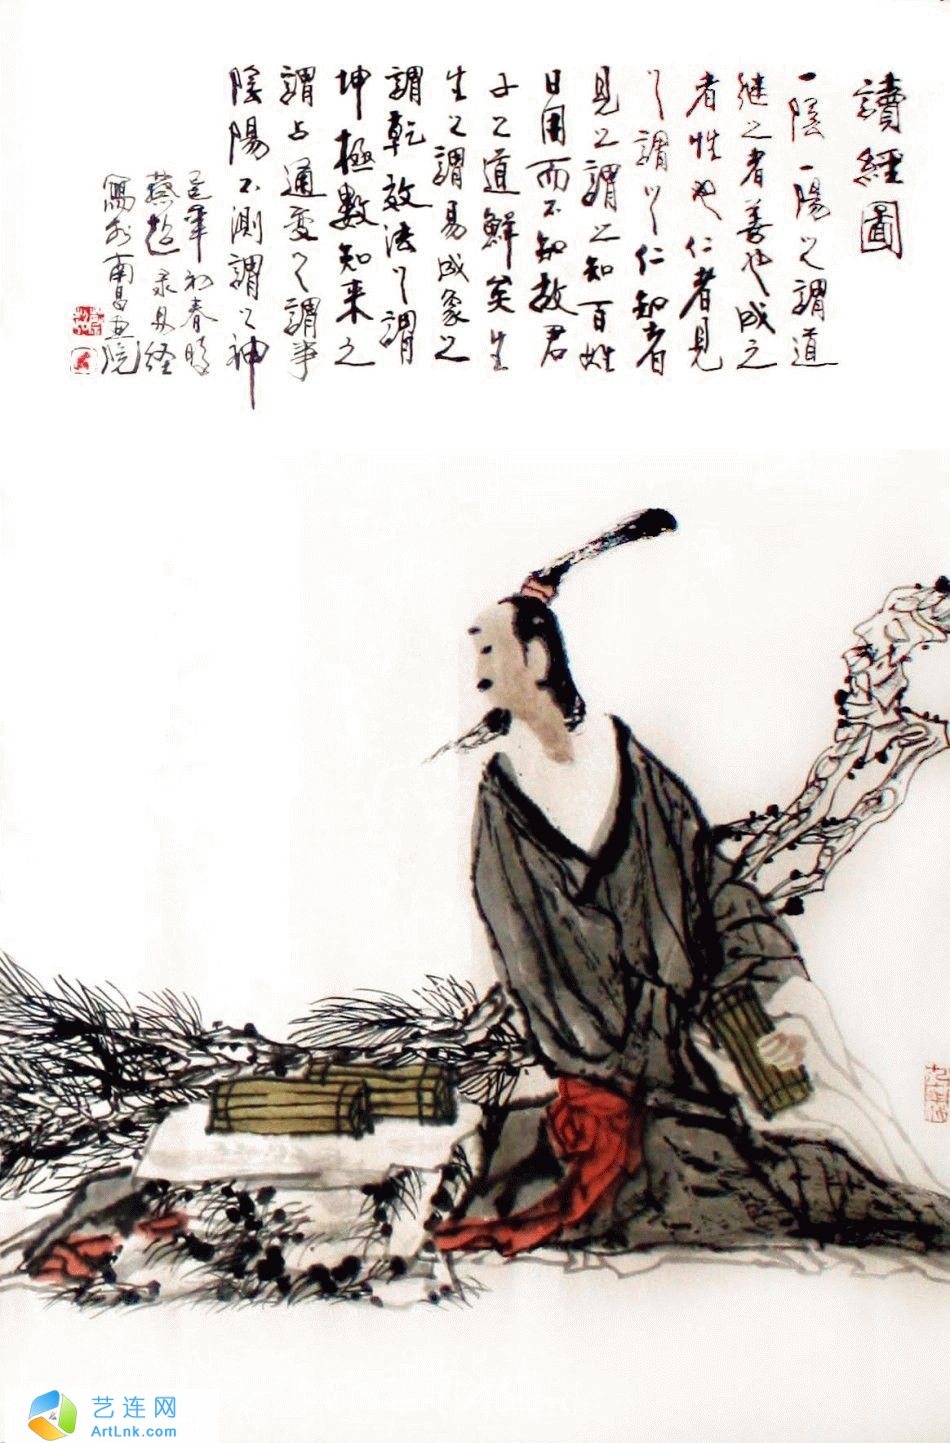 讀經圖
一陰一陽之謂道
继之者善也成之
者性也仁者見
之謂之仁知者
見之謂之知百姓
日用而不知故君
子之道鮮矣生
生之謂易成象之
謂乾效法之謂
坤極數知来之
謂占通变之謂事
陰陽不測謂之神
初春
蔡超录易经
寫於南昌画院
艺连网
ArtLnk.com